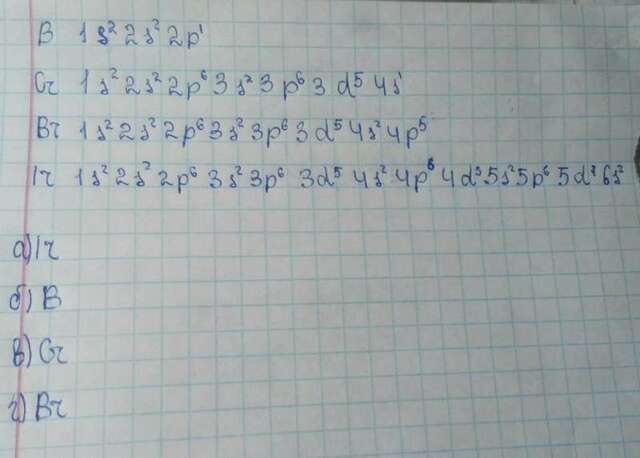 B 1s² 2s² 2p¹
Cr 1s² 2s² 2p⁶ 3s² 3p⁶ 3d⁵ 4s¹
Br 1s² 2s² 2p⁶ 3s² 3p⁶ 3d⁵ 4s² 4p⁵
Ir 1s² 2s² 2p⁶ 3s² 3p⁶ 3d⁵ 4s² 4p⁶ 4d⁵ 5s² 5p⁶ 5d⁷ 6s²
а) Ir
б) B
в) Cr
г) Br